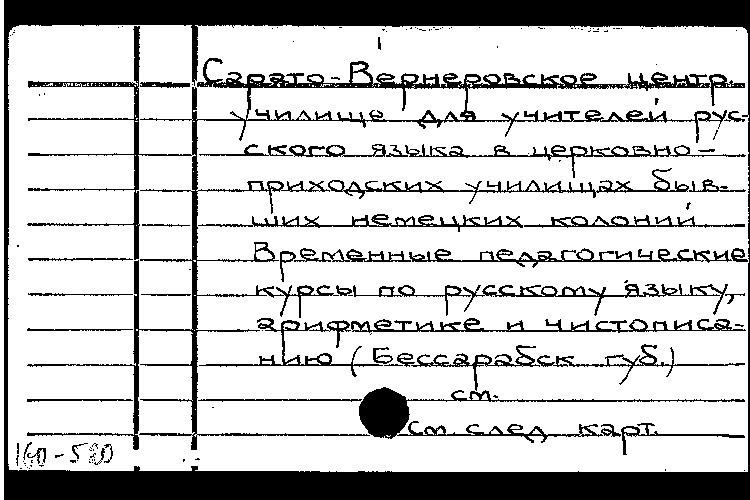 Сарато-Вернеровское центр.
училище для учителей рус-
ского языка в церковно-
приходских училищах быв-
ших немецких колоний.
Временные педагогические
курсы по русскому языку,
арифметике и чистописа-
нию (Бессарабск. губ.)
см.
См. след. карт.
160-580